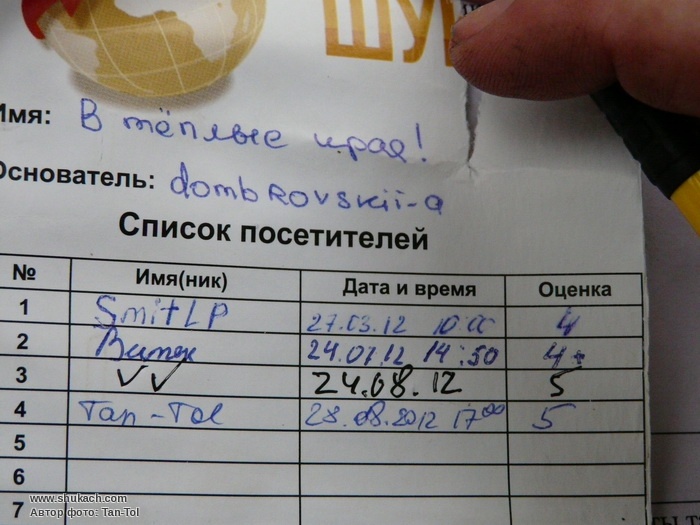 ШУ
Имя: В тёплые края!
Основатель: dombrovskii-a
Список посетителей
№ Имя(ник) Дата и время Оценка
1 SmitLP 27.03.12 10:00 4
2 Витек 24.07.12 14:50 4+
3 VV 24.08.12 5
4 Tan-Tol 28.08.2012 17 00 5
5
6
7
www.shukach.com
Автор фото: Tan-Tol